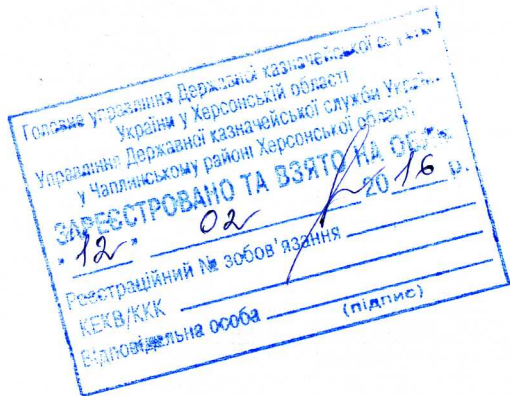 Головне управління Державної казначейської служби
України у Херсонській області
Управління Державної казначейської служби України
у Чаплинському районі Херсонської області
ЗАРЕЄСТРОВАНО ТА ВЗЯТО НА ОБЛІК
"12" 02 2016 р.
Реєстраційний № зобов'язання
КЕКВ/ККК
Відповідальна особа
(підпис)